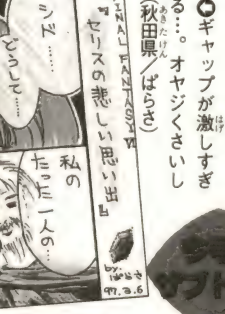 ギャップが激しすぎ
る…。オヤジくさいし
(秋田県/ぱらさ)
FINAL FANTASY VI
『セリスの悲しい思い出』
by.
ぱらさ
97.3.6
シド……
どうして……
私の
たった一人の…